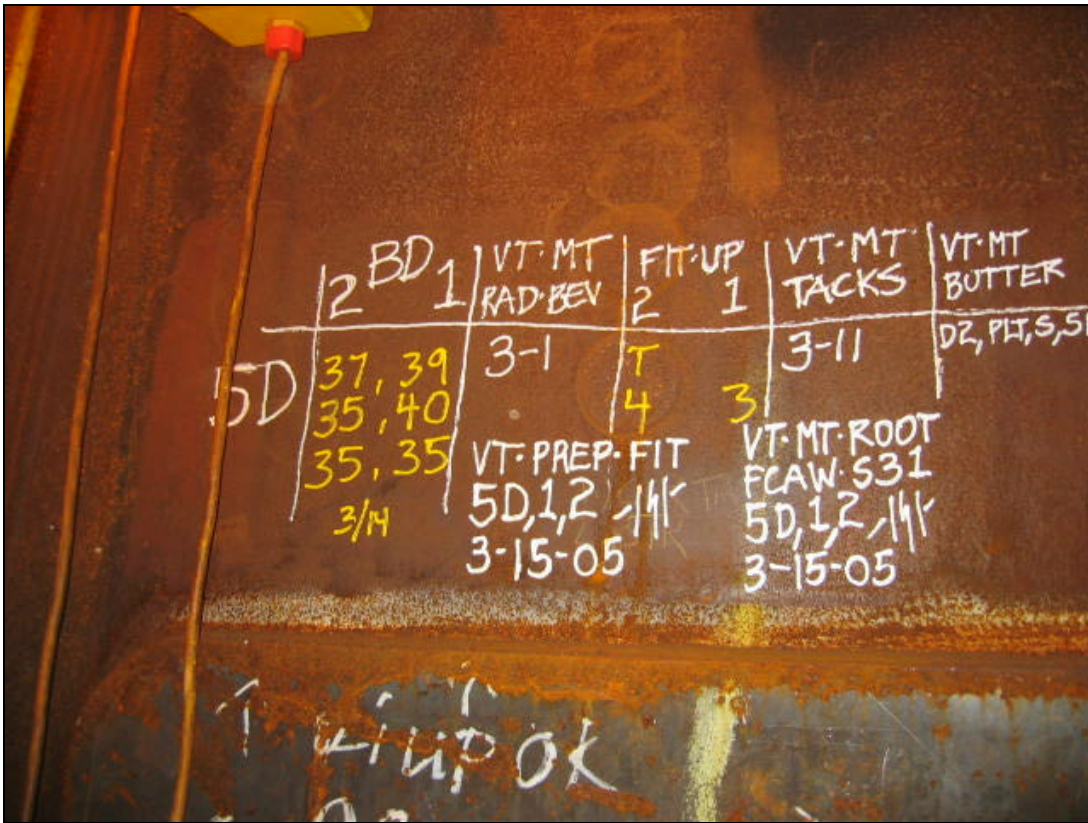 2 BD 1
VT·MT
RAD·BEV
FIT·UP
2 1
VT·MT
TACKS
VT·MT
BUTTER
5D
37, 39
35, 40
35, 35
3/14
3-1
T
4 3
3-11
DZ, PLT, S,
VT·PREP·FIT
5D,1,2
3-15-05
VT·MT·ROOT
FCAW·S31
5D,1,2
3-15-05
OK